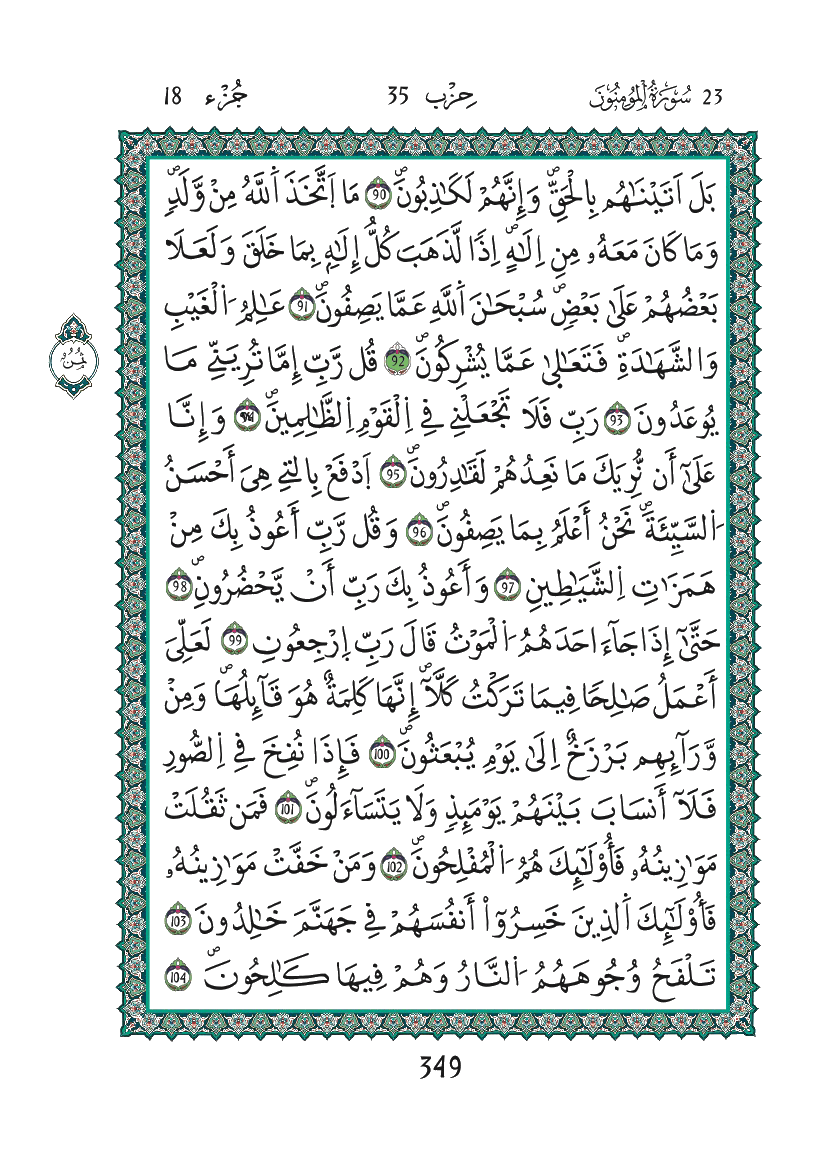 23 سُورَةُ اُلْمُومِنُونَ حِزْب 35 جُزْء 18
بَلَ اَتَيْنَٰهُم بِالْحَقِّۖ وَإِنَّهُمْ لَكَٰذِبُونَۖ 90 مَا اَتَّخَذَ اَ۬للَّهُ مِنْ وَّلَدٖۖ
وَمَا كَانَ مَعَهُۥ مِنِ اِلَٰهٍۖ اِذاٗ لَّذَهَبَ كُلُّ إِلَٰهِۢ بِمَا خَلَقَ وَلَعَلَا
بَعْضُهُمْ عَلَىٰ بَعْضٖۖ سُبْحَٰنَ اَ۬للَّهِ عَمَّا يَصِفُونَۖ 91 عَٰلِمُ اُ۬لْغَيْبِ
وَالشَّهَٰدَةِۖ فَتَعَٰلَىٰ عَمَّا يُشْرِكُونَۖ 92 قُل رَّبِّ إِمَّا تُرِيَنِّے مَا
يُوعَدُونَ 93 رَبِّ فَلَا تَجْعَلْنِے فِے اِ۬لْقَوْمِ اِ۬لظَّٰلِمِينَۖ 94 وَإِنَّا
ثُمُن
عَلَىٰٓ أَن نُّرِيَكَ مَا نَعِدُهُمْ لَقَٰدِرُونَۖ 95 اَ۪دْفَعْ بِالتِے هِىَ أَحْسَنُ
اُ۬لسَّيِّئَةَۖ نَحْنُ أَعْلَمُ بِمَا يَصِفُونَۖ 96 وَقُل رَّبِّ أَعُوذُ بِكَ مِنْ
هَمَزَٰتِ اِ۬لشَّيَٰطِينِ 97 وَأَعُوذُ بِكَ رَبِّ أَنْ يَّحْضُرُونِۖ 98
حَتَّىٰٓ إِذَا جَآءَ احَدَهُمُ اُ۬لْمَوْتُ قَالَ رَبِّ اِ۪رْجِعُونِ 99 لَعَلِّىَ
أَعْمَلُ صَٰلِحاٗ فِيمَا تَرَكْتُ كَلَّآۖ إِنَّهَا كَلِمَةٌ هُوَ قَآئِلُهَاۖ وَمِنْ
وَّرَآئِهِم بَرْزَخٌ اِلَىٰ يَوْمِ يُبْعَثُونَۖ 100 فَإِذَا نُفِخَ فِے اِ۬لصُّورِ
فَلَآ أَنسَابَ بَيْنَهُمْ يَوْمَئِذٖ وَلَا يَتَسَآءَلُونَۖ 101 فَمَن ثَقُلَتْ
مَوَٰزِينُهُۥ فَأُوْلَٰٓئِكَ هُمُ اُ۬لْمُفْلِحُونَۖ 102 وَمَنْ خَفَّتْ مَوَٰزِينُهُۥ
فَأُوْلَٰٓئِكَ اَ۬لذِينَ خَسِرُوٓاْ أَنفُسَهُمْ فِے جَهَنَّمَ خَٰلِدُونَ 103
تَلْفَحُ وُجُوهَهُمُ اُ۬لنَّارُ وَهُمْ فِيهَا كَٰلِحُونَۖ 104
349